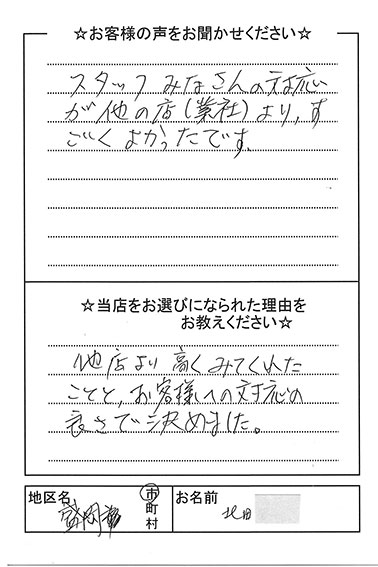 ☆お客様の声をお聞かせください☆
スタッフみなさんの対応
が他の店(業社)より、す
ごくよかったです。
☆当店をお選びになられた理由を
お教えください☆
他店より高くみてくれた
ことと、お客様への対応の
良さで決めました。
地区名 盛岡 市町村
お名前 北田